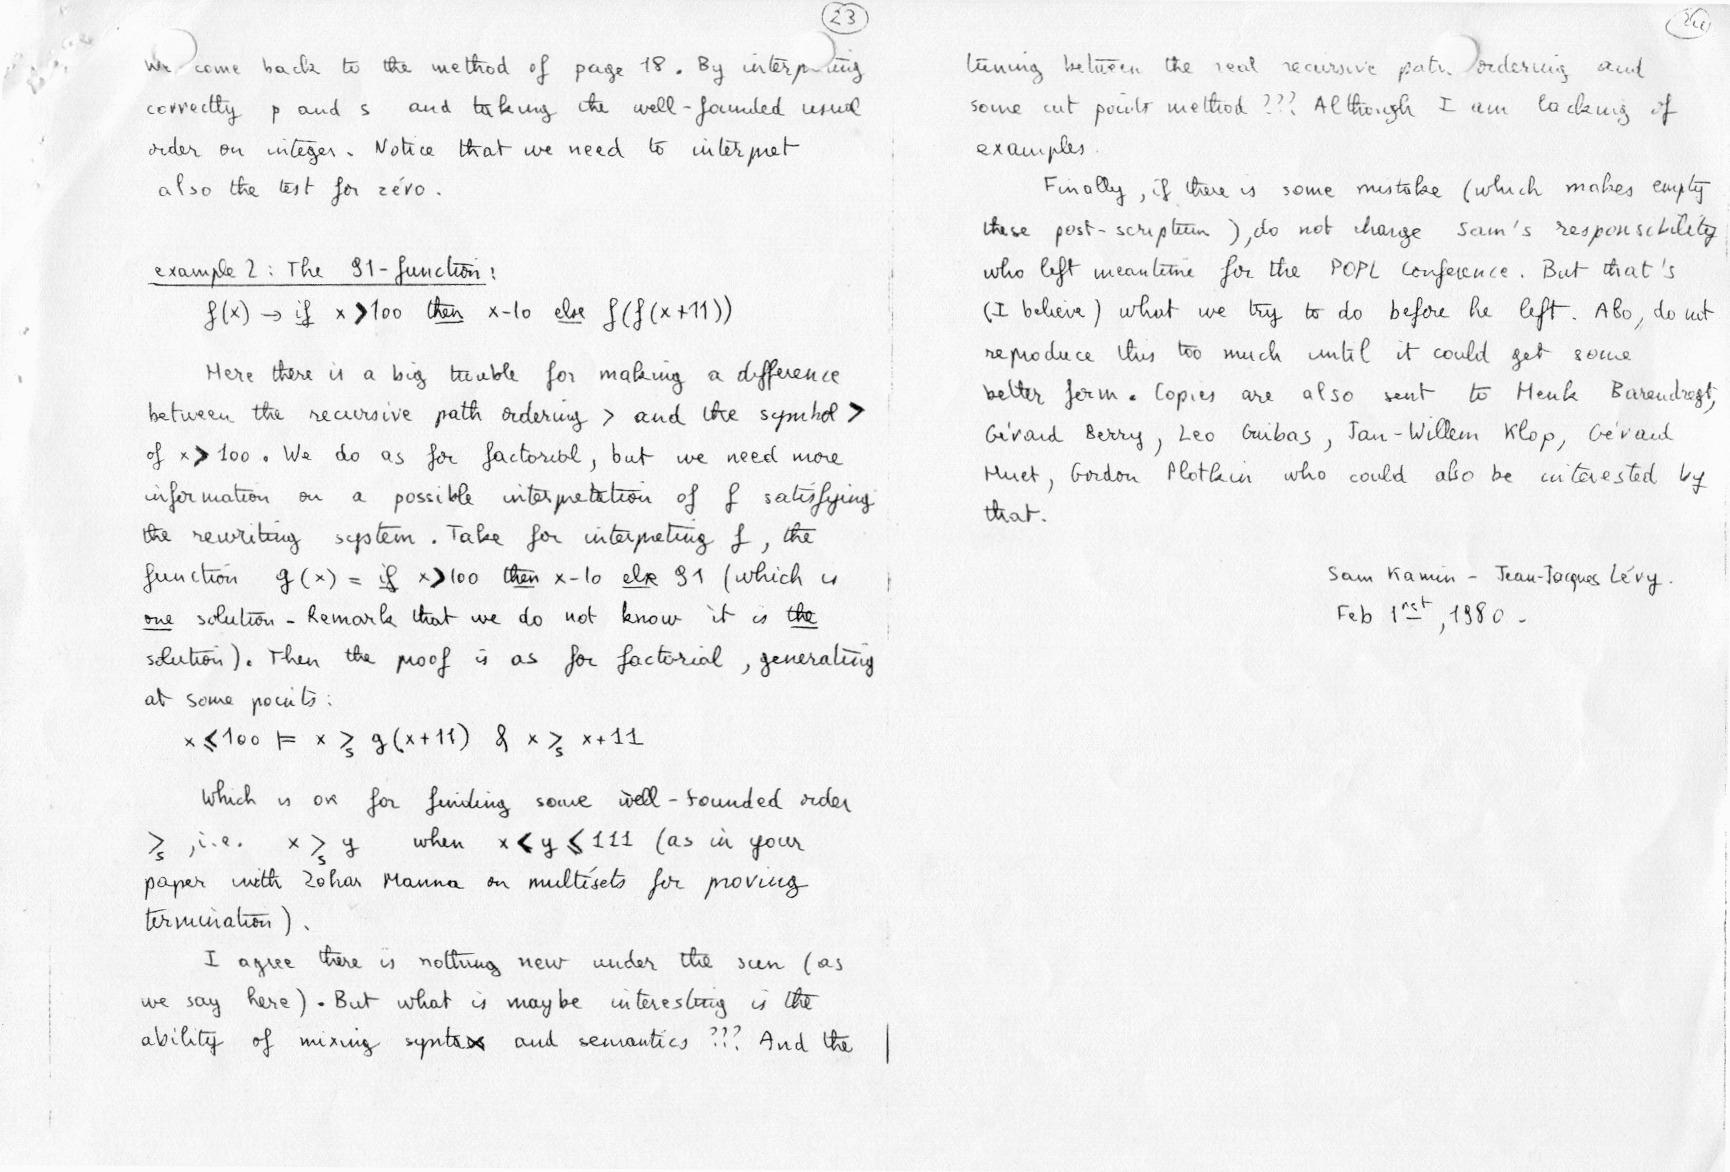 23
We come back to the method of page 18. By interpreting
correctly p and s and taking the well-founded usual
order on integer. Notice that we need to interpret
also the test for zéro.
example 2: The 91-function:
f(x) → if x > 100 then x-10 else f(f(x+11))
Here there is a big trouble for making a difference
between the recursive path ordering > and the symbol >
of x > 100. We do as for factorial, but we need more
information on a possible interpretation of f satisfying
the rewriting system. Take for interpreting f, the
function g(x) = if x > 100 then x-10 else 91 (which is
one solution - Remark that we do not know it is the
solution). Then the proof is as for factorial, generating
at some points:
x ⩽ 100 ⊨ x >ₛ g(x+11) & x >ₛ x+11
Which is ok for finding some well-founded order
>ₛ, i.e. x >ₛ y when x < y ⩽ 111 (as in your
paper with Zohar Manna on multisets for proving
termination).
I agree there is nothing new under the sun (as
we say here). But what is maybe interesting is the
ability of mixing syntax and semantics ??? And the
24
tuning between the real recursive path ordering and
some cut points method ??? Although I am lacking of
examples.
Finally, if there is some mistake (which makes empty
these post-scriptum), do not charge Sam's responsibility
who left meantime for the POPL Conference. But that's
(I believe) what we try to do before he left. Also, do not
reproduce this too much until it could get some
better form. Copies are also sent to Henk Barendregt,
Gérard Berry, Leo Guibas, Jan-Willem Klop, Gérard
Huet, Gordon Plotkin who could also be interested by
that.
Sam Kamin - Jean-Jacques Lévy.
Feb 1rst, 1980.